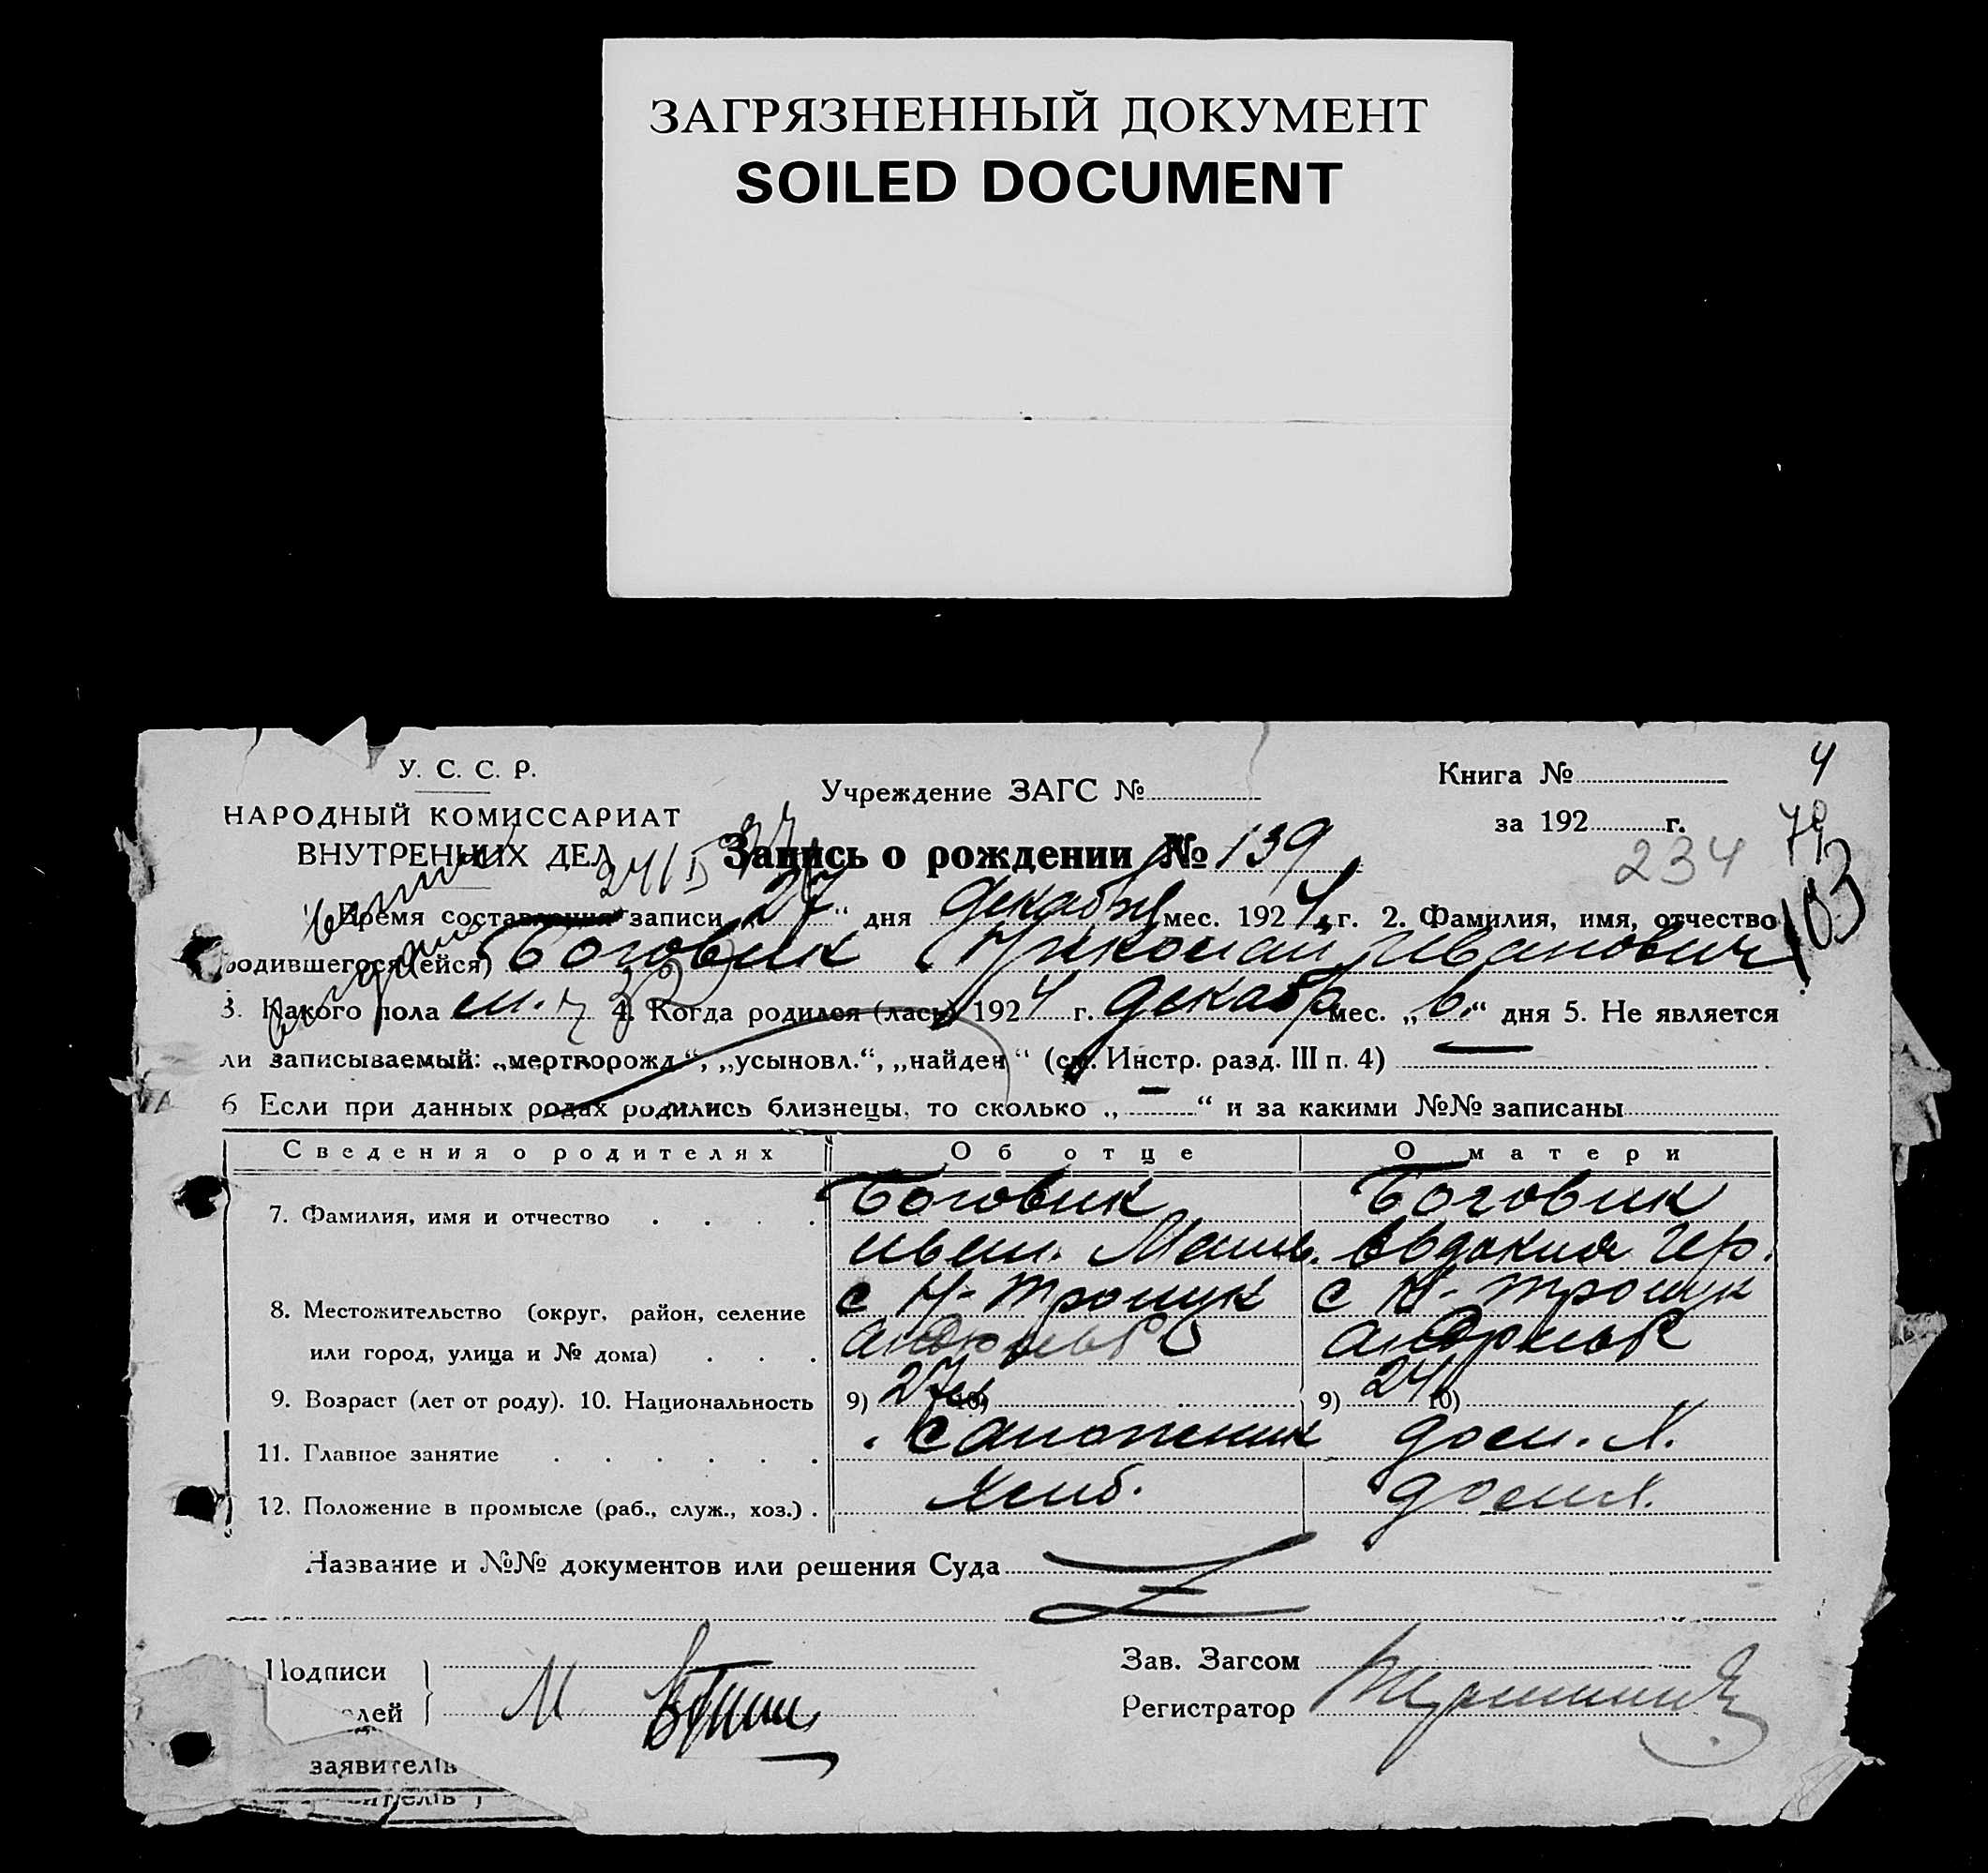 ЗАГРЯЗНЕННЫЙ ДОКУМЕНТ
SOILED DOCUMENT
У. С. С. Р.
НАРОДНЫЙ КОМИССАРИАТ
ВНУТРЕННИХ ДЕЛ
Учреждение ЗАГС №
Книга №
4
за 192 г.
234
103
Запись о рождении № 139
Время составления записи „27“ дня декабря мес. 1924 г. 2. Фамилия, имя, отчество
родившегося (ейся) Боговик Николай Иванович
3. Какого пола м. 4. Когда родился (лась) 1924 г. декабр мес. „6.“ дня 5. Не является
ли записываемый: „мертворожд.“, „усыновл.“, „найден“ (см. Инстр. разд. III п. 4) —
6 Если при данных родах родились близнецы, то сколько „—“ и за какими №№ записаны
Сведения о родителях Об отце О матери
7. Фамилия, имя и отчество Боговик Боговик
Евдокия
8. Местожительство (округ, район, селение с Н- с Н-
или город, улица и № дома)
9. Возраст (лет от роду). 10. Национальность 9) 27 10) 9) 24 10)
11. Главное занятие Сапожник дом. х.
12. Положение в промысле (раб., служ., хоз.) дом х.
Название и №№ документов или решения Суда
Подписи
елей
заявителів
Зав. Загсом
Регистратор